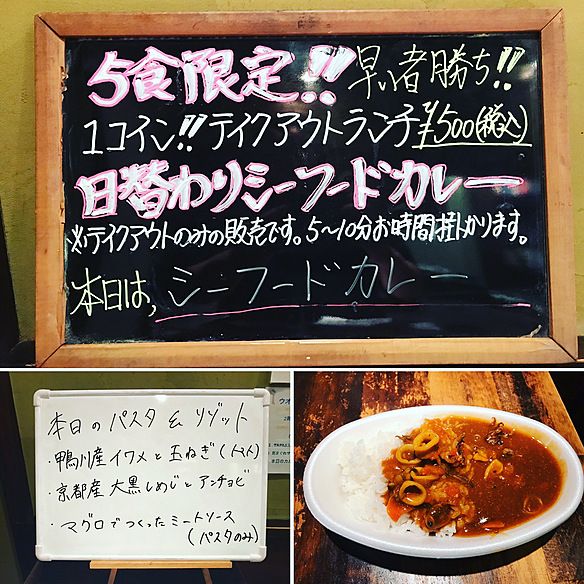 5食限定!! 早い者勝ち!!
1コイン!! テイクアウトランチ ¥500(税込)
日替わりシーフードカレー
※テイクアウトのみの販売です。5～10分お時間掛かります。
本日は、シーフードカレー
本日のパスタ & リゾット
・鴨川産イワメと玉ねぎ(トマト)
・京都産大黒しめじとアンチョビ
・マグロでつくったミートソース
(パスタのみ)